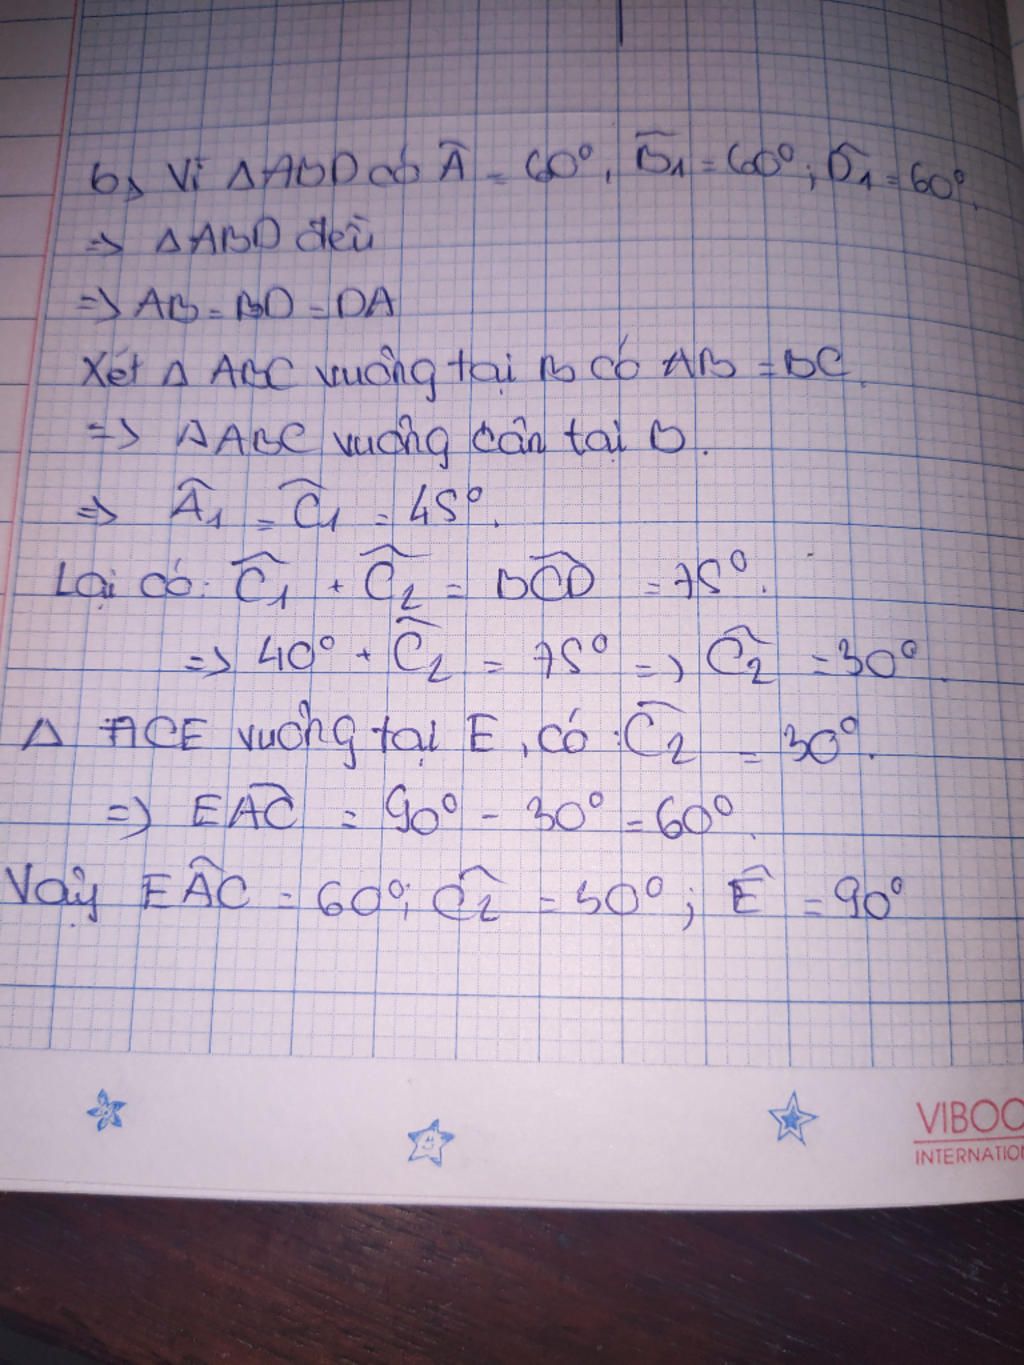 b, Vì ΔABD có Â = 60°, B̂₁ = 60°; D̂₁ = 60°.
=> ΔABD đều
=> AB = BD = DA
Xét Δ ABC vuông tại B có AB = BC.
=> ΔABC vuông cân tại B.
=> Â₁ = Ĉ₁ = 45°.
Lại có: Ĉ₁ + Ĉ₂ = BĈD = 75°.
=> 40° + Ĉ₂ = 75° => Ĉ₂ = 30°.
Δ ACE vuông tại E, có: Ĉ₂ = 30°.
=> EÂC = 90° - 30° = 60°.
Vậy EÂC = 60°; Ĉ₂ = 30°; Ê = 90°
VIBOO
INTERNATION